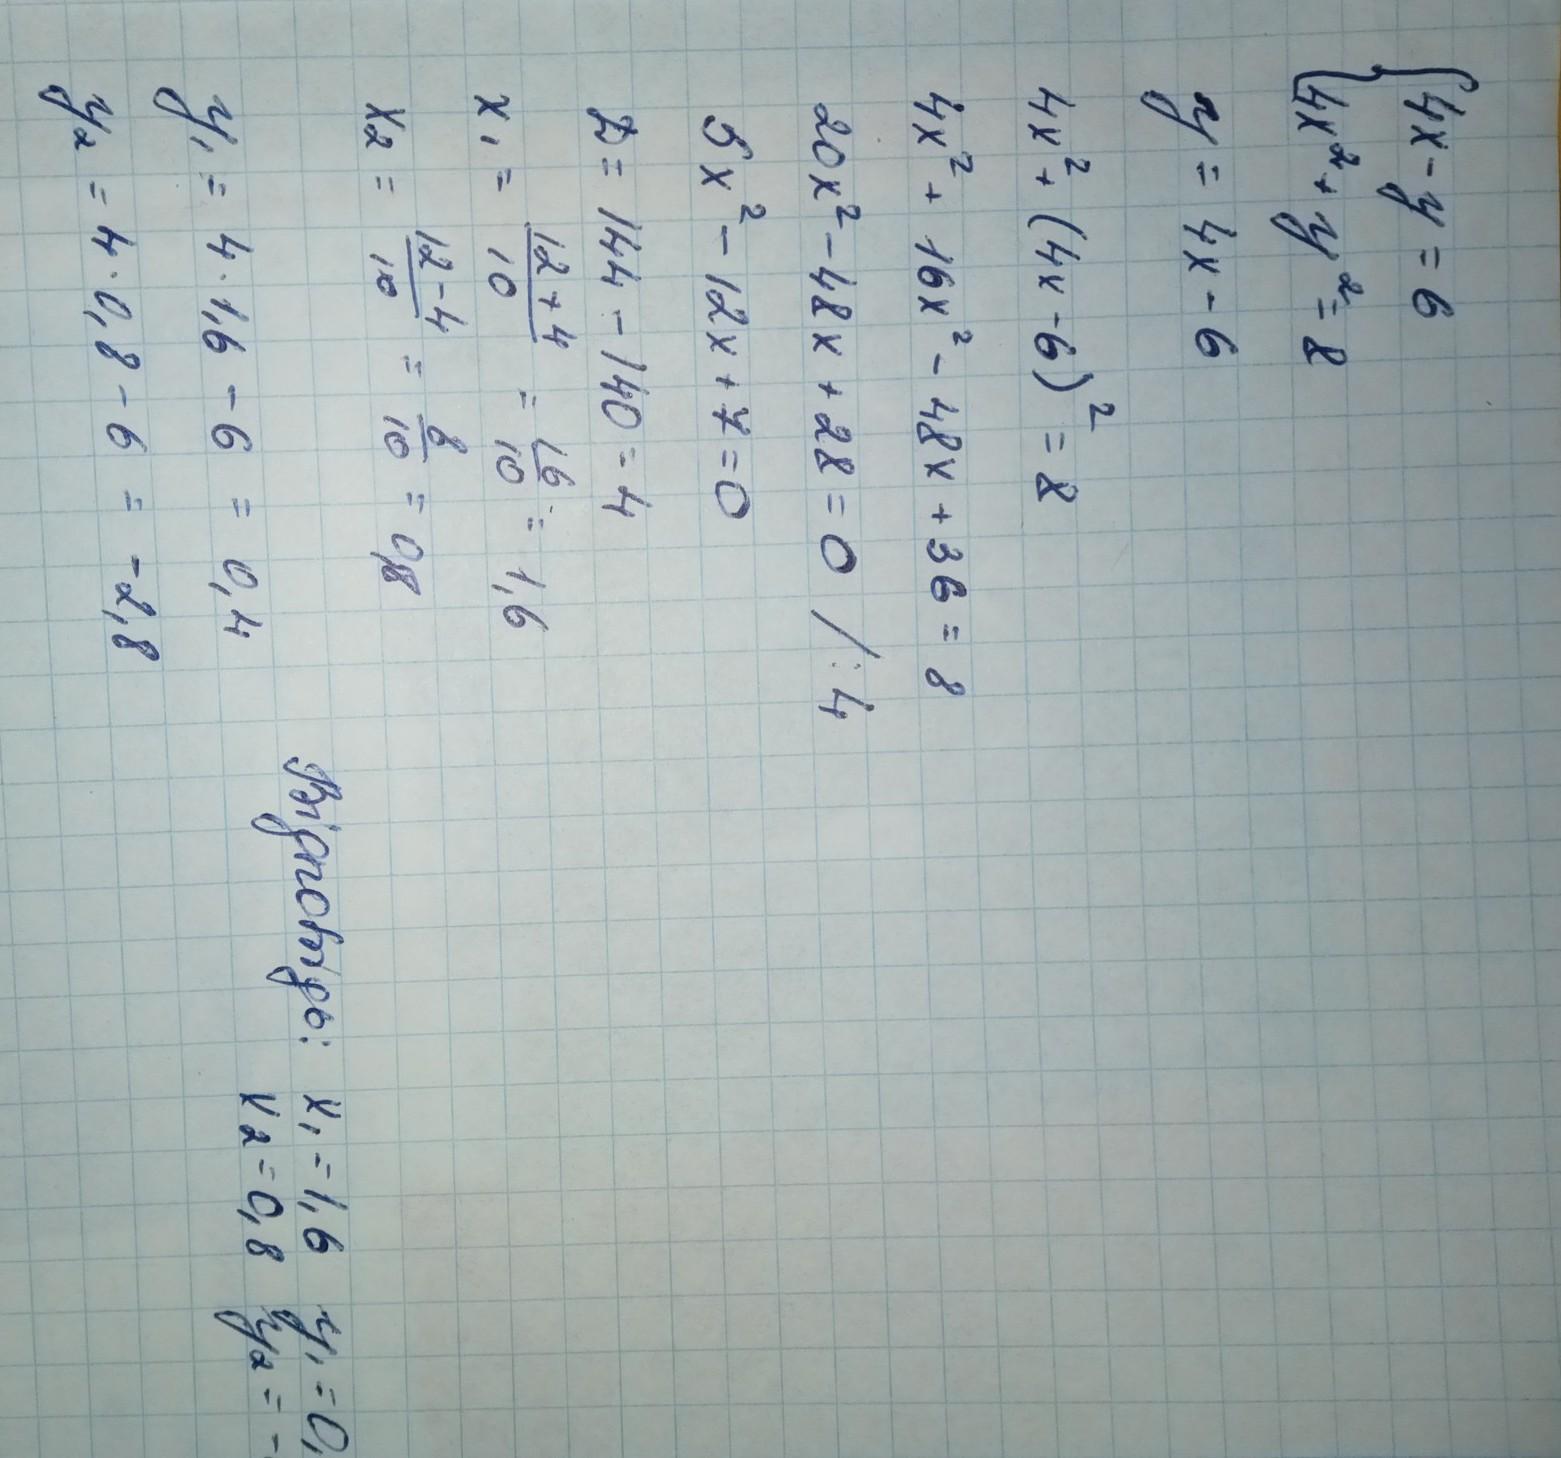 4x - y = 6
4x² + y² = 8
y = 4x - 6
4x² + (4x - 6)² = 8
4x² + 16x² - 48x + 36 = 8
20x² - 48x + 28 = 0 /: 4
5x² - 12x + 7 = 0
D = 144 - 140 = 4
x₁ = (12 + 4)/10 = 16/10 = 1,6
x₂ = (12 - 4)/10 = 8/10 = 0,8
y₁ = 4 · 1,6 - 6 = 0,4
y₂ = 4 · 0,8 - 6 = -2,8
Відповідь: x₁ = 1,6 y₁ = 0,
x₂ = 0,8 y₂ = -